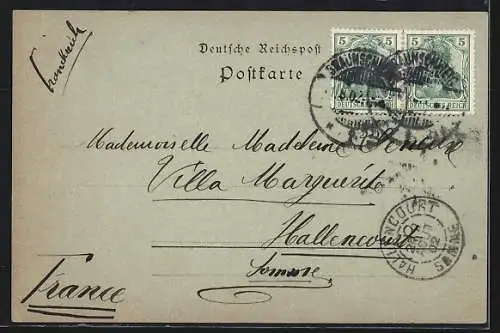 Frankreich
Deutsche Reichspost
Postkarte
5 5 5 5
DEUTSCHES REICH DEUTSCHES REICH
BRAUNSCHWEIG
Mademoiselle Madeleine
Villa Marguerite
Hallencourt
Somme
France
HALLENCOURT
SOMME